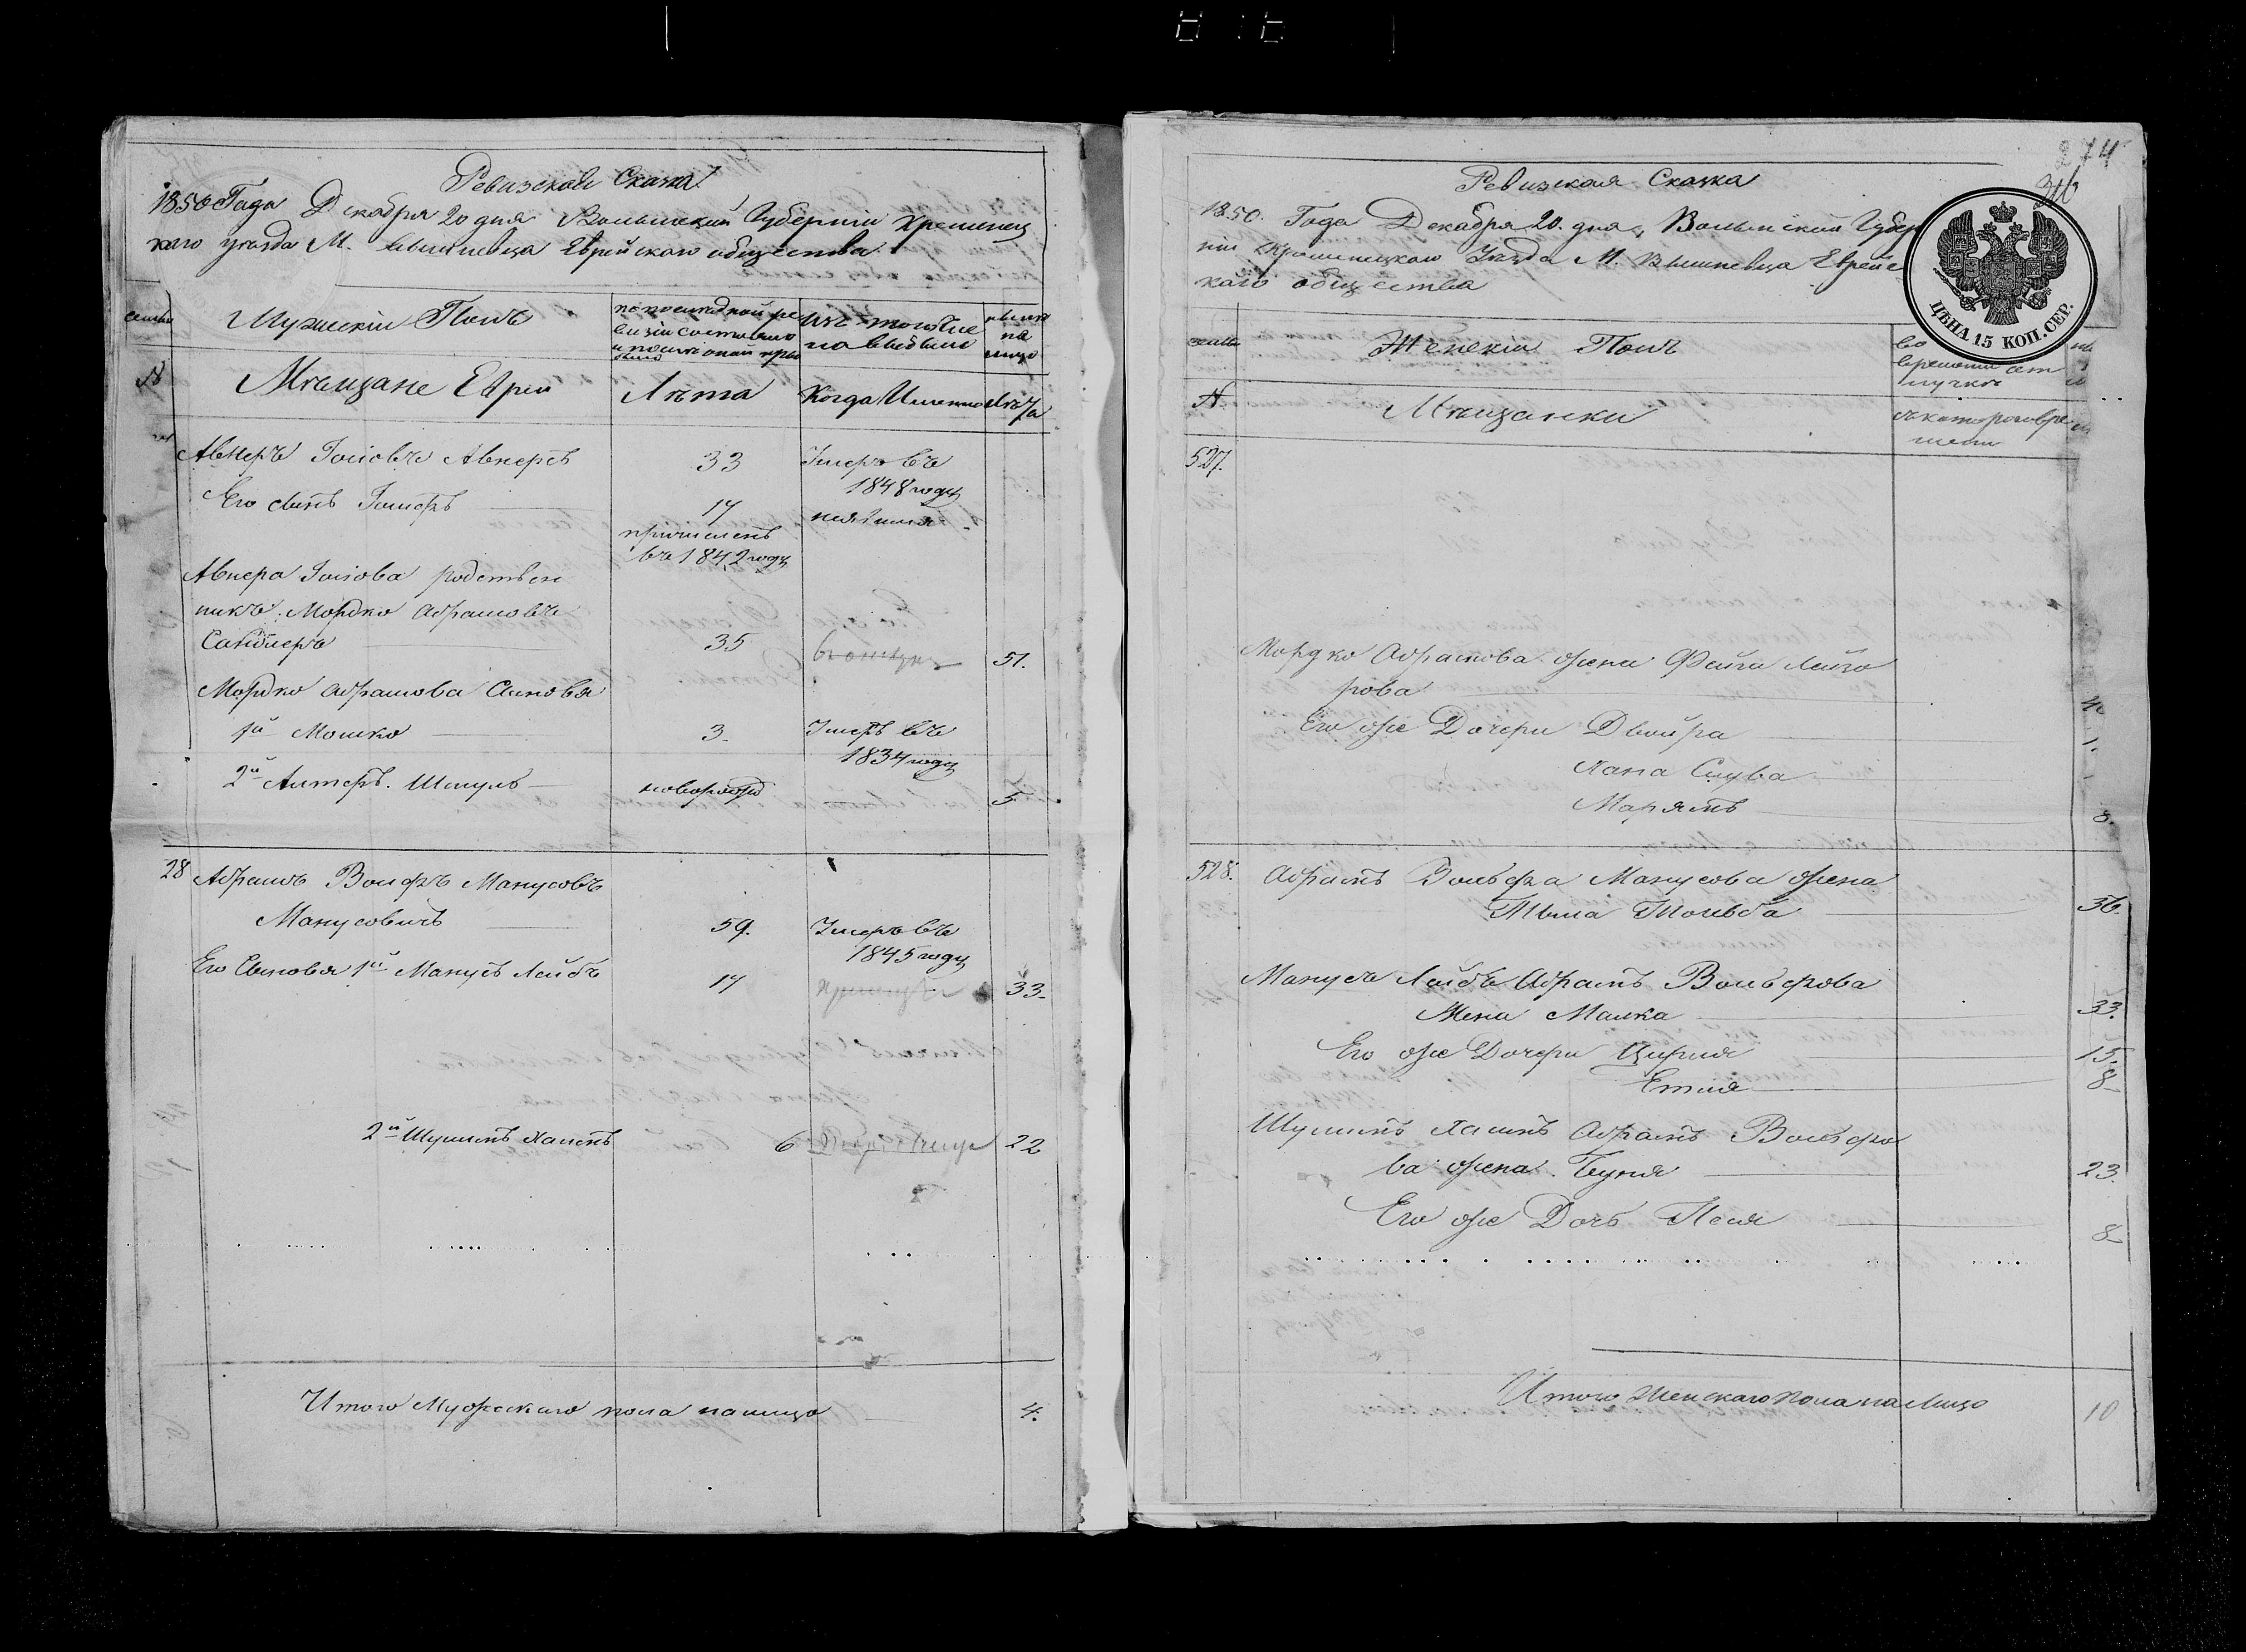 Ревизская Сказка
1850 Года Декабря 20 дня Волынской Губернии Кременец
каго уезда М. Вышневца Еврейскаго общества
семьи
Мужескій Полъ
по последной ре
визіи состояло
и после оной при
было
Изъ того чис
ла выбыло
ныне
на
лицо
№
Мещане Евреи
Лета
Когда Именно
Лета
Авнеръ Іосіовъ Авнеръ
33
Умеръ въ
1848 году
Его сынъ
17
причисленъ
въ 1842 году
Авнера Іосіова родствен
никъ Мордко Абрамовъ
Сандлеръ
35
51.
Мордко Абрамова Сыновья
1й Мошко
3
Умеръ въ
1834 году
2й Алтеръ Шмуль
новорожд
5
28
Абрамъ Вольфъ Манусовъ
Манусовичъ
59.
Умеръ въ
1845 году
Его Сыновья 1й Манусъ Лейбъ
17
33.
2й Шулимъ Хаимъ
6
22
Итого Мужескаго пола на лицо
4.
274
Ревизская Сказка
1850. Года Декабря 20. дня, Волынской Губер
ніи Кременецкаго Уезда М. Вышневца Еврейс
каго общества
ЦѢНА 15 КОП. СЕР.
семьи
Женскій Полъ
во
временной от
лучке
№
Мещанки
съ котораго вре
мени
527.
Мордко Абрамова жена Фейга Лейзо
рова
Его же Дочери Двойра
Хана Слува
Марямъ
8.
528.
Абрамъ Вольфа Манусова жена
Тольба
36.
Манусъ Лейбъ Абрамъ Вольфова
Жена Малка
33.
Его же Дочери Цирля
15.
Етля
8
Шулимъ Хаимъ Абрамъ Вольфо
ва жена Буня
23.
Его же Дочь Песя
8
Итого Женскаго пола на Лицо
10